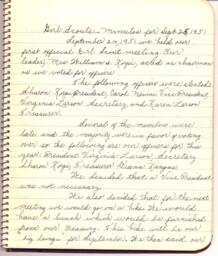 Girl Scouts - Minutes for Sept 25, 1951
September 25, 1951 we held our
first official Girl Scout meeting. Our
leader, Mrs. Williams, acted as chairman
as we voted for officers.
The following officers were elected:
Sharon President, Carol Vice President,
Virginia Larson Secretary, and Karen Larson
Treasurer.
Several of the members were
late and the majority were in favor of voting
over so the following are our officers for this
year: President Virginia Larson, Secretary
Sharon Treasurer Diana
We decided that a Vice President
was not necessary.
We also decided that for the next
meeting we would go on a hike. We would
have a lunch which would be furnished
from our treasury. This hike will be our
big longer for September. We then said our